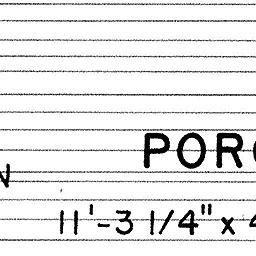 PORC
N
11'-3 1/4" x 4